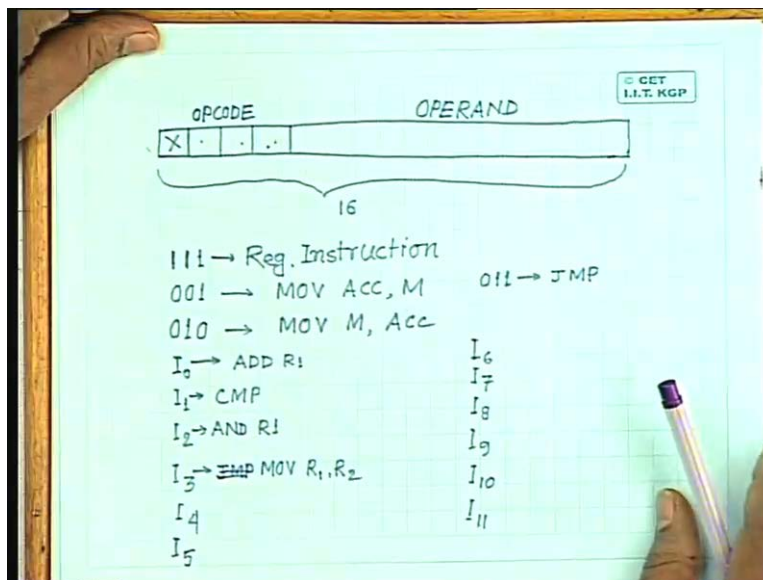 © CET
I.I.T. KGP
OPCODE OPERAND
X
16
111 → Reg. Instruction
001 → MOV ACC, M
011 → JMP
010 → MOV M, ACC
I0 → ADD R1
I1 → CMP
I2 → AND R1
I3 → MOV R1, R2
I4
I5
I6
I7
I8
I9
I10
I11